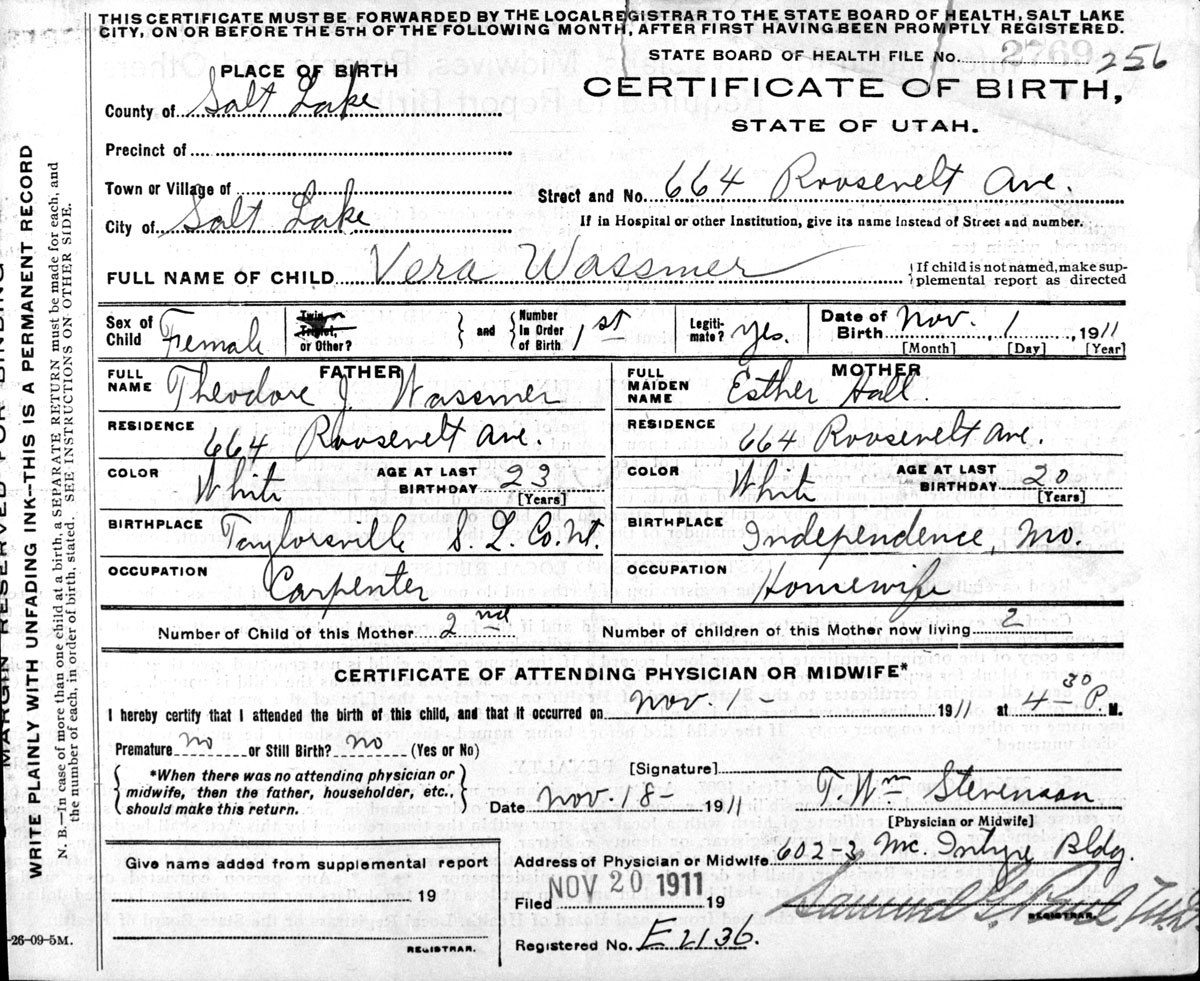 THIS CERTIFICATE MUST BE FORWARDED BY THE LOCAL REGISTRAR TO THE STATE BOARD OF HEALTH, SALT LAKE
CITY, ON OR BEFORE THE 5TH OF THE FOLLOWING MONTH, AFTER FIRST HAVING BEEN PROMPTLY REGISTERED.
STATE BOARD OF HEALTH FILE No. 256
PLACE OF BIRTH
CERTIFICATE OF BIRTH,
STATE OF UTAH.
County of Salt Lake
Precinct of
Town or Village of
Street and No. 664 Roosevelt Ave.
City of Salt Lake
If in Hospital or other Institution, give its name instead of Street and number.
FULL NAME OF CHILD Vera Wassmer
{If child is not named, make sup-
plemental report as directed
Sex of Child Female
Twin, Triplet, or Other?
and Number In Order of Birth 1st
Legiti-mate? Yes.
Date of Birth Nov. 1, 1911
[Month] [Day] [Year]
FATHER
FULL NAME Theodore J. Wassmer
MOTHER
FULL MAIDEN NAME Esther Hall.
RESIDENCE 664 Roosevelt Ave.
RESIDENCE 664 Roosevelt Ave.
COLOR White AGE AT LAST BIRTHDAY 23 [Years]
COLOR White AGE AT LAST BIRTHDAY 20 [Years]
BIRTHPLACE Taylorsville S. L. Co. Ut.
BIRTHPLACE Independence, Mo.
OCCUPATION Carpenter
OCCUPATION Homewife
Number of Child of this Mother 2nd
Number of children of this Mother now living 2
CERTIFICATE OF ATTENDING PHYSICIAN OR MIDWIFE*
I hereby certify that I attended the birth of this child, and that it occurred on Nov. - 1911 at 4 30 P. M.
Premature no or Still Birth? no (Yes or No)
*When there was no attending physician or
midwife, then the father, householder, etc.,
should make this return.
[Signature] T. Wm Stevenson
[Physician or Midwife]
Date Nov. 18- 1911
Give name added from supplemental report
19
REGISTRAR.
Address of Physician or Midwife 602-3 Mc Intyre Bldg.
Filed NOV 20 1911 19
REGISTRAR.
Registered No. E2136.
-26-09-5M.
MARGIN RESERVED FOR BINDING
WRITE PLAINLY WITH UNFADING INK—THIS IS A PERMANENT RECORD
N. B.—In case of more than one child at a birth, a SEPARATE RETURN must be made for each, and
the number of each, in order of birth, stated. SEE INSTRUCTIONS ON OTHER SIDE.